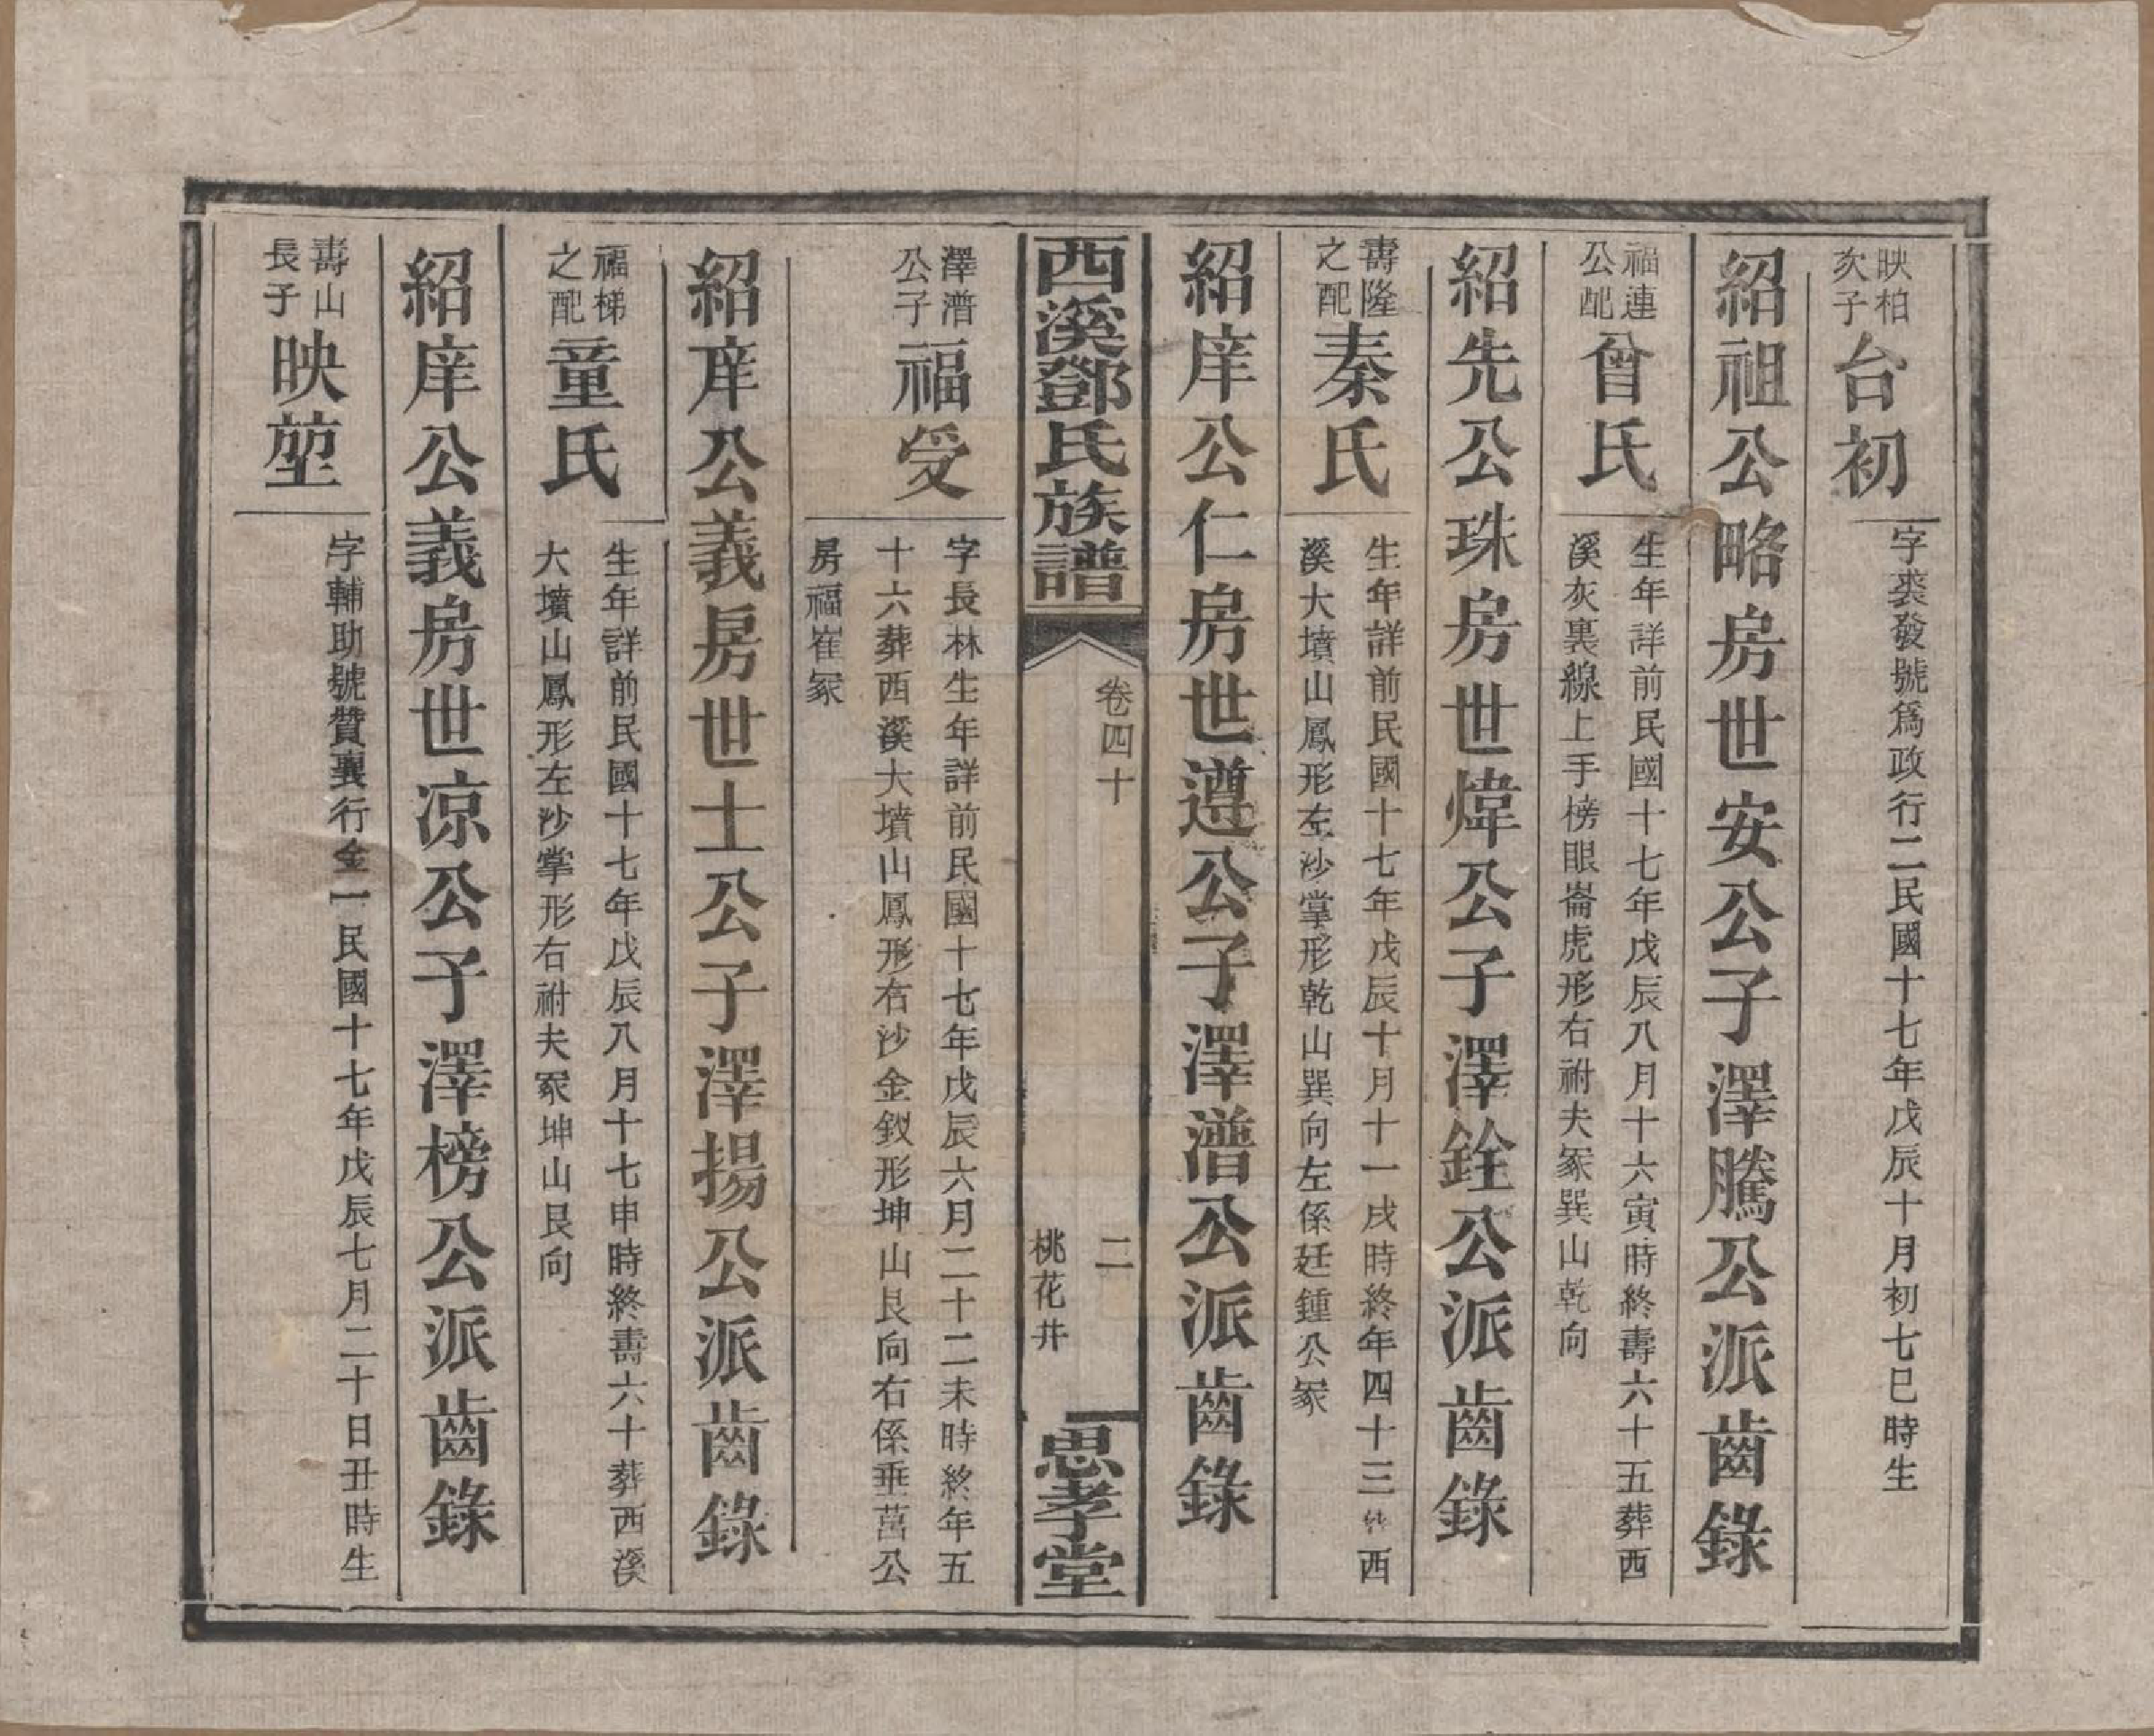 映柏
次子
台初
字裘發號爲政行二民國十七年戊辰十月初七巳時生
紹祖公略房世安公子澤騰公派齒錄
福連
公配
曾氏
生年詳前民國十七年戊辰八月十六寅時終壽六十五葬西
溪灰裏線上手榜眼崙虎形右祔夫冢巽山乾向
紹先公珠房世煒公子澤銓公派齒錄
壽隆
之配
秦氏
生年詳前民國十七年戊辰十月十一戌時終年四十三葬西
溪大墳山鳳形左沙掌形乾山巽向左係廷鍾公冢
紹庠公仁房世遵公子澤潽公派齒錄
西溪鄧氏族譜
卷四十
二
桃花井
思孝堂
澤潽
公子
福受
字長林生年詳前民國十七年戊辰六月二十二未時終年五
十六葬西溪大墳山鳳形右沙金釵形坤山艮向右係垂莒公
房福崔冢
紹庠公義房世士公子澤揚公派齒錄
福梯
之配
童氏
生年詳前民國十七年戊辰八月十七申時終壽六十葬西溪
大墳山鳳形左沙掌形右祔夫冢坤山艮向
紹庠公義房世凉公子澤榜公派齒錄
壽山
長子
映堃
字輔助號贊襄行金一民國十七年戊辰七月二十日丑時生